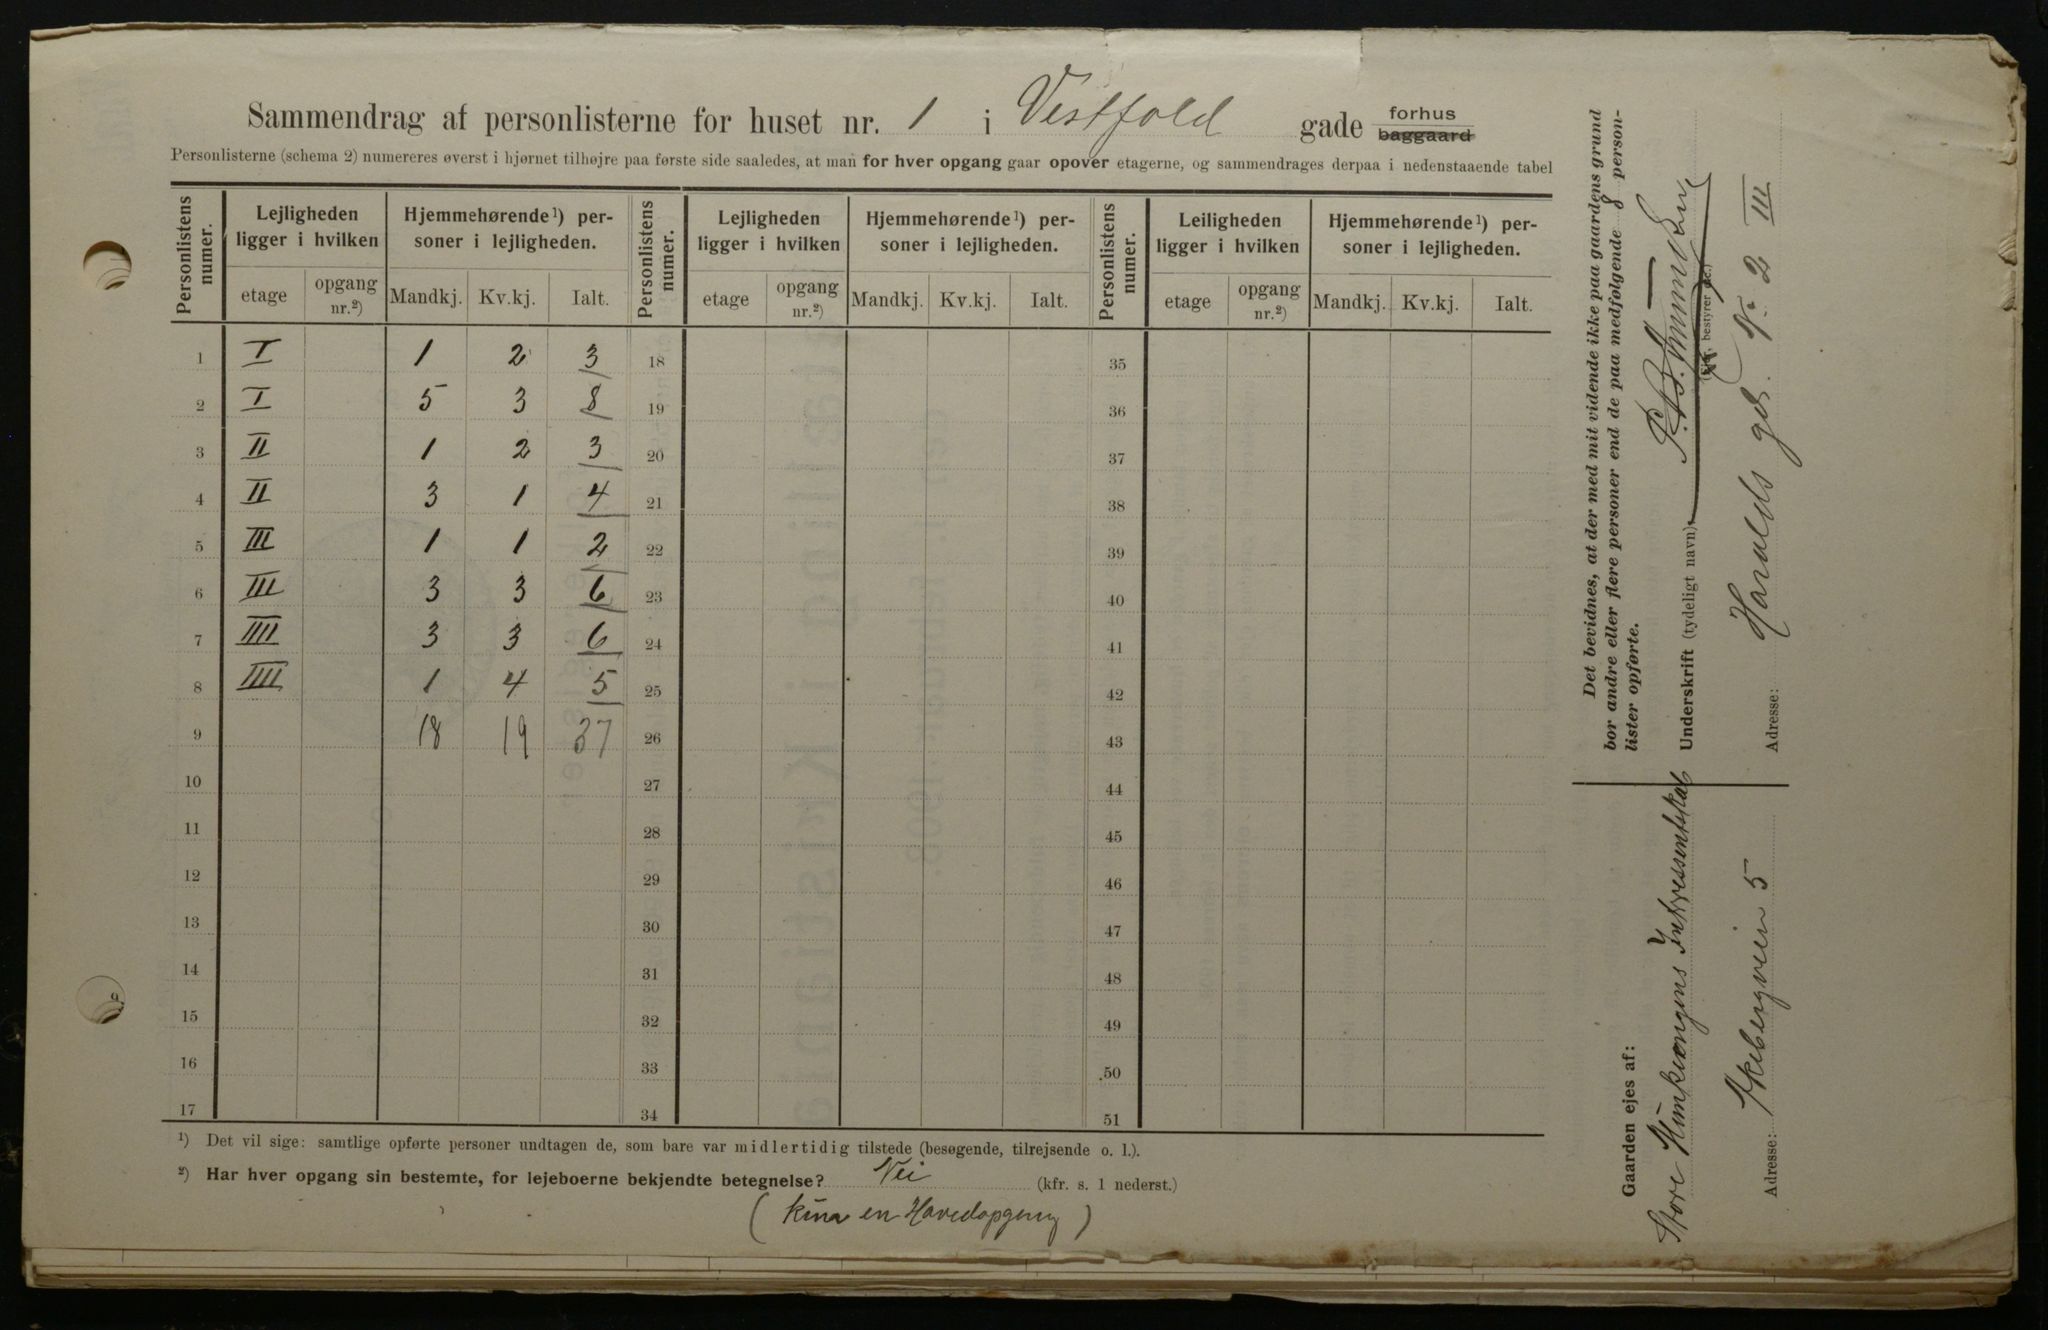 Sammendrag af personlisterne for huset nr. 1 i Vestfold gade forhus ~~baggaard~~
Personlisterne (schema 2) numereres øverst i hjørnet tilhøjre paa første side saaledes, at man for hver opgang gaar opover etagerne, og sammendrages derpaa i nedenstaaende tabel
Personlistens numer. | Lejligheden ligger i hvilken | Hjemmehørende ¹) personer i lejligheden. | Personlistens numer. | Lejligheden ligger i hvilken | Hjemmehørende ¹) personer i lejligheden. | Personlistens numer. | Leiligheden ligger i hvilken | Hjemmehørende ¹) personer i lejligheden.
etage | opgang nr.²) | Mandkj. | Kv.kj. | Ialt. | etage | opgang nr.²) | Mandkj. | Kv.kj. | Ialt. | etage | opgang nr.²) | Mandkj. | Kv.kj. | Ialt.
1 | I | | 1 | 2 | 3 | 18 | 35
2 | I | | 5 | 3 | 8 | 19 | 36
3 | II | | 1 | 2 | 3 | 20 | 37
4 | II | | 3 | 1 | 4 | 21 | 38
5 | III | | 1 | 1 | 2 | 22 | 39
6 | III | | 3 | 3 | 6 | 23 | 40
7 | IIII | | 3 | 3 | 6 | 24 | 41
8 | IIII | | 1 | 4 | 5 | 25 | 42
9 | | | 18 | 19 | 37 | 26 | 43
10 | 27 | 44
11 | 28 | 45
12 | 29 | 46
13 | 30 | 47
14 | 31 | 48
15 | 32 | 49
16 | 33 | 50
17 | 34 | 51
¹) Det vil sige: samtlige opførte personer undtagen de, som bare var midlertidig tilstede (besøgende, tilrejsende o. l.).
²) Har hver opgang sin bestemte, for lejeboerne bekjendte betegnelse? Nei (kfr. s. 1 nederst.)
(kun en Hovedopgang)
Det bevidnes, at der med mit vidende ikke paa gaardens grund
bor andre eller flere personer end de paa medfølgende 8 person-
lister opførte.
Underskrift (tydeligt navn):
bestyrer
Adresse: Haralds gd. No 2 III
Gaarden ejes af:
Store Interessentskab
Adresse: Akebergveien 5